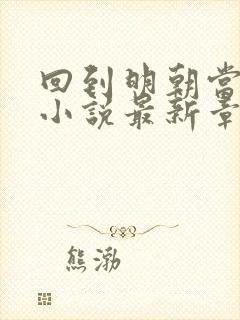 回到明朝当
小说最新章
熊渤